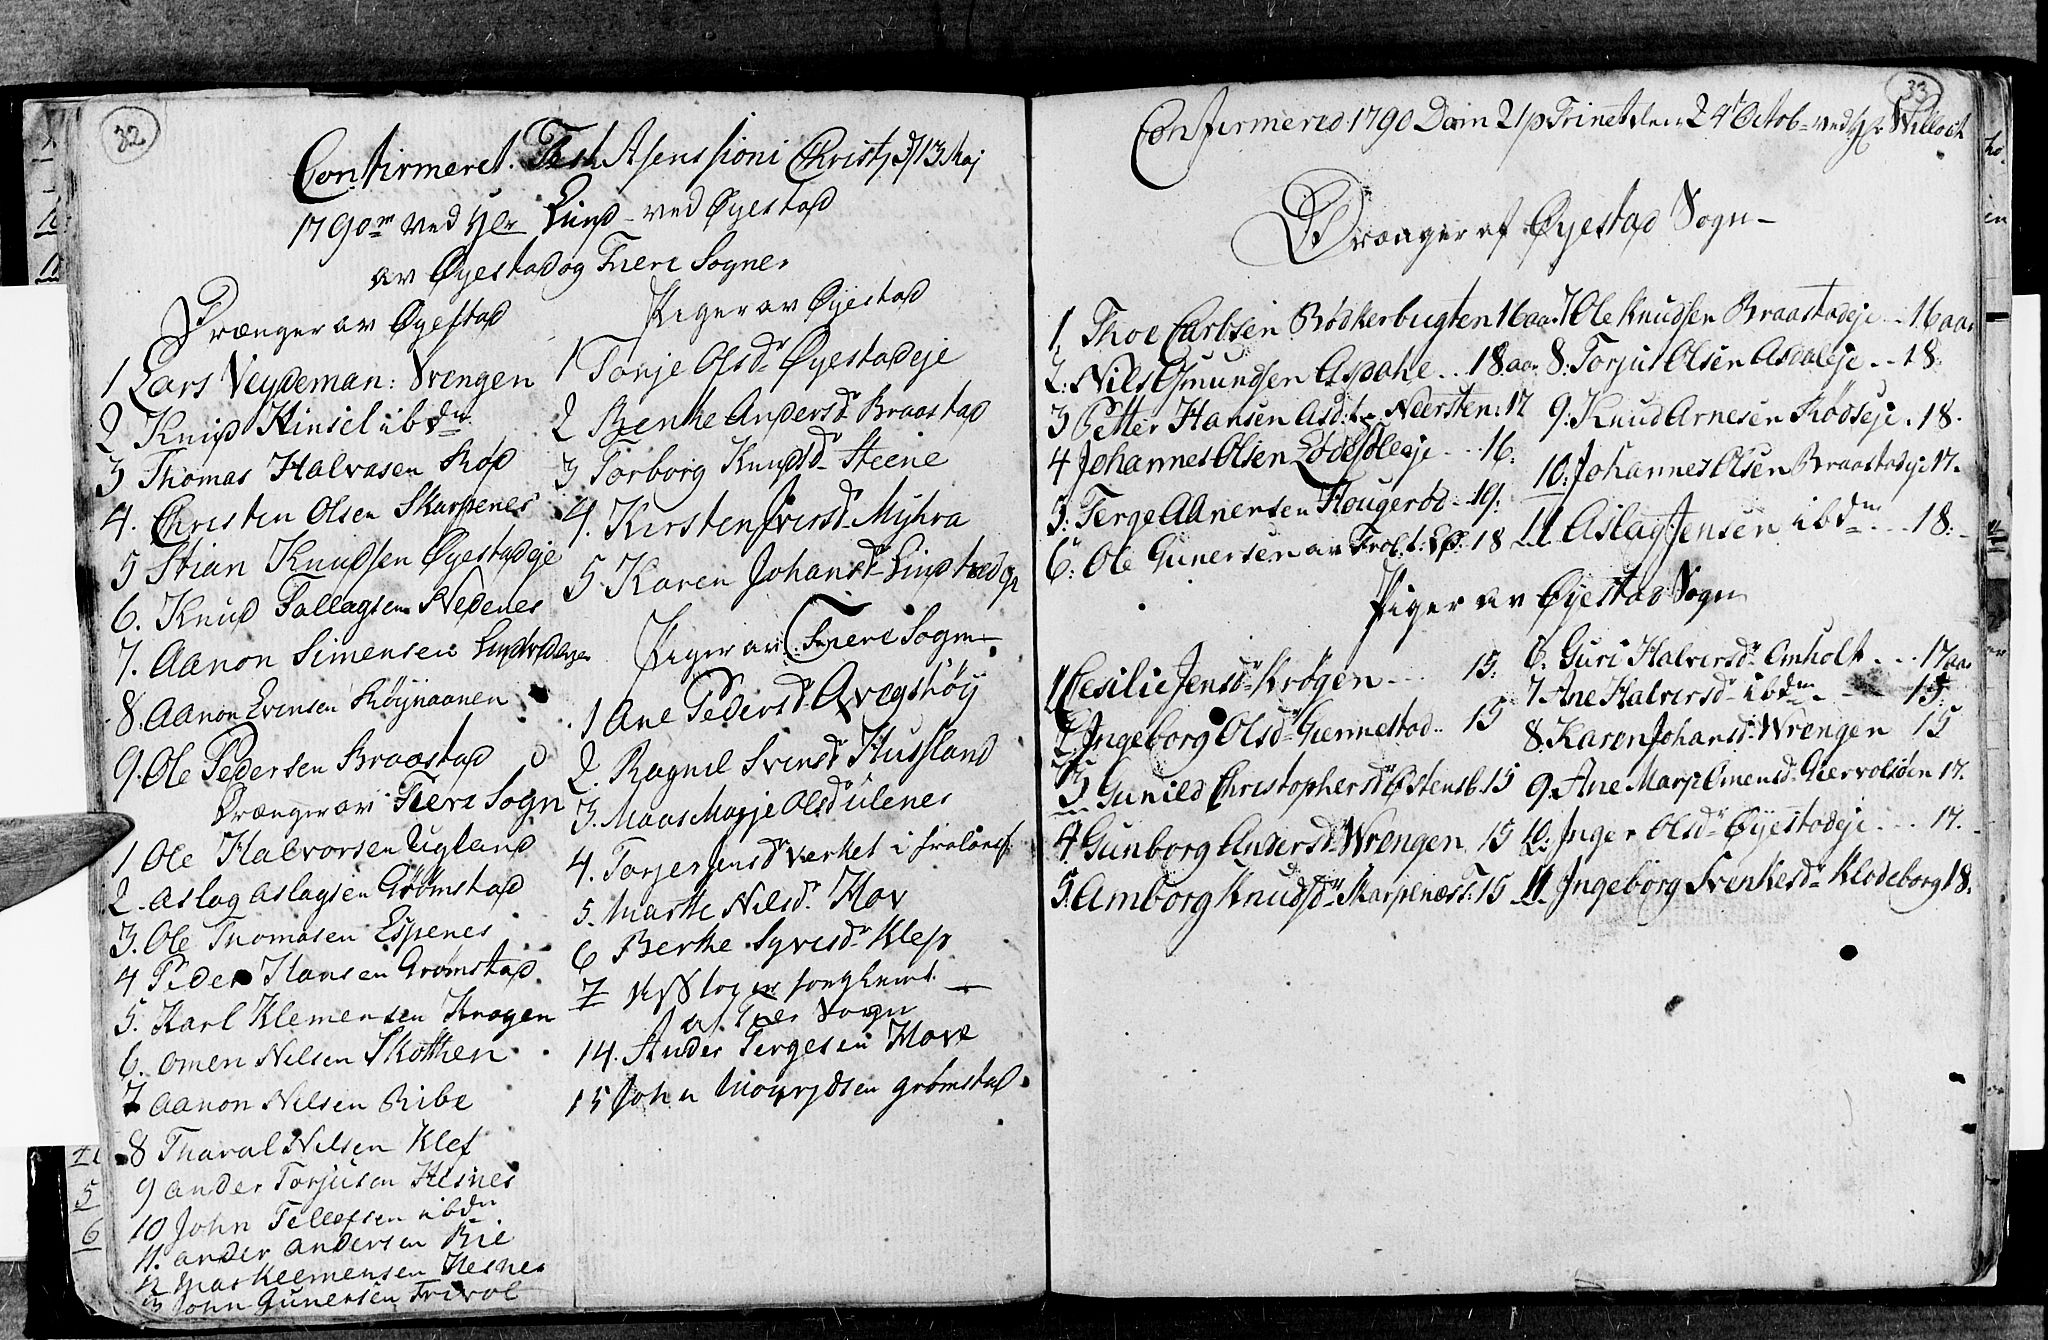 32
Confirmeret. Fest Asenssioni Christj d 13 Maj
1790 ved Hr Lind ved Øyestad
av Øyestad og Fiere Sogner
Drænger av Øyestad
1 Lars Veydeman: Vrengen
2 Knud Hinsel ibdm
3 Thomas Halvasen Rød
4. Christen Olsen Skarpenes
5 Stian Knudsen Øyestadeje
6. Knud Tallagsen Nedenes
7. Aanon Simensen
8. Aanon Evensen
9. Ole Pedersen Braastad
Drænger av Fiere Sogn
1 Ole Halvorsen Ugland
2. Aslag Aslagsen Grømstad
3. Ole Thomasen Espenes
4 Peder Hansen Grømstad
5. Karl Klemensen Krogen
6. Omen Nilsen Skotthen
7 Aanon Nilsen Ribe
8 Tharal Nilsen Klef
9 Ander Torjusen Hesnes
10 John Tellefsen ibdm
11. Ander Andersen Bie
12 Mas Kleemensen Hesnes
13 John Gunersen
Piger av Øyestad
1 Tonje Olsdr Øyestadeje
2 Benthe Andersdr Braastad
3 Torborg Knudsdr Steene
4. Kirsten Iversdr Myhra
5. Karen Johansdr
Piger av Fiere Sogn
1 Ane Pedersdr
2. Ragnil Svensdr Hussland
3. Maas Marje Olsdr Ulenes
4. Torjer Jensdr verket i Froland
5. Marthe Nilsdr Hov
6 Berthe Syversdr Klep
7
af Fier Sogn
14. Ander Tergesen Hove
15 John Mouridsen Grømstad
33
Confirmered 1790 Dom 21 p Trinet: den 24 Octob: ved Hr Willoch
Drænger af Øyestad Sogn
1 Thoe Carlsen Rødkerbugten 16 aar
2. Nils Gmundsen Aspahe .. 18 aar
3 Petter Hansen Neersten: 17
4 Johannes Olsen 16:
5: Terge Aanensen Hougerød 19:
6: Ole Gunersen av 18
7 Ole Knudsen Braastadeje .. 16 aar
8: Torjus Olsen Asdaleje .. 18:
9: Knud Arnesen Rødseje . 18.
10: Johannes Olsen Braastadeje 17.
11 Aslag Jensen ibdm .. 18:
Piger av Øyestad Sogn
1 Cesilie Jensdr Krøgen ... 15:
2. Ingeborg Olsdr Giennestad .. 15
3 Gunild Christophersdr Østensb. 15
4. Gunborg Andersdr Wrengen 15
5. Amborg Knudsdr Skarpenæs 15
6. Guri Halversdr Omholt ... 17 aar
7 Ane Halversdr ibdm 15:
8. Karen Johansdr Wrengen 15
9. Ane Mari Omensdr 17.
10: Inger Olsdr Øyestadeje ... 17.
11 Ingeborg Svenkesdr Klodeborg 18.